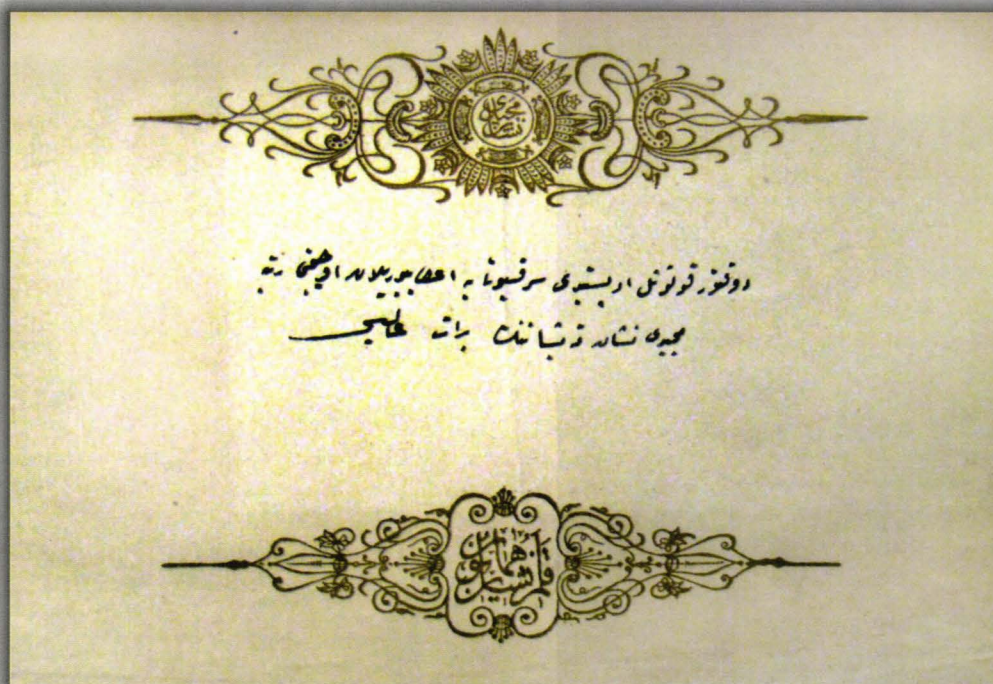 مجیدی نشان
دوقتور قولونل اریستیدی سرقسیوتا یه اعطا بیوریلان اوچنجی رتبه
مجیدی نشان ذیشاننك برات عالیسی
قلم نشان همایون